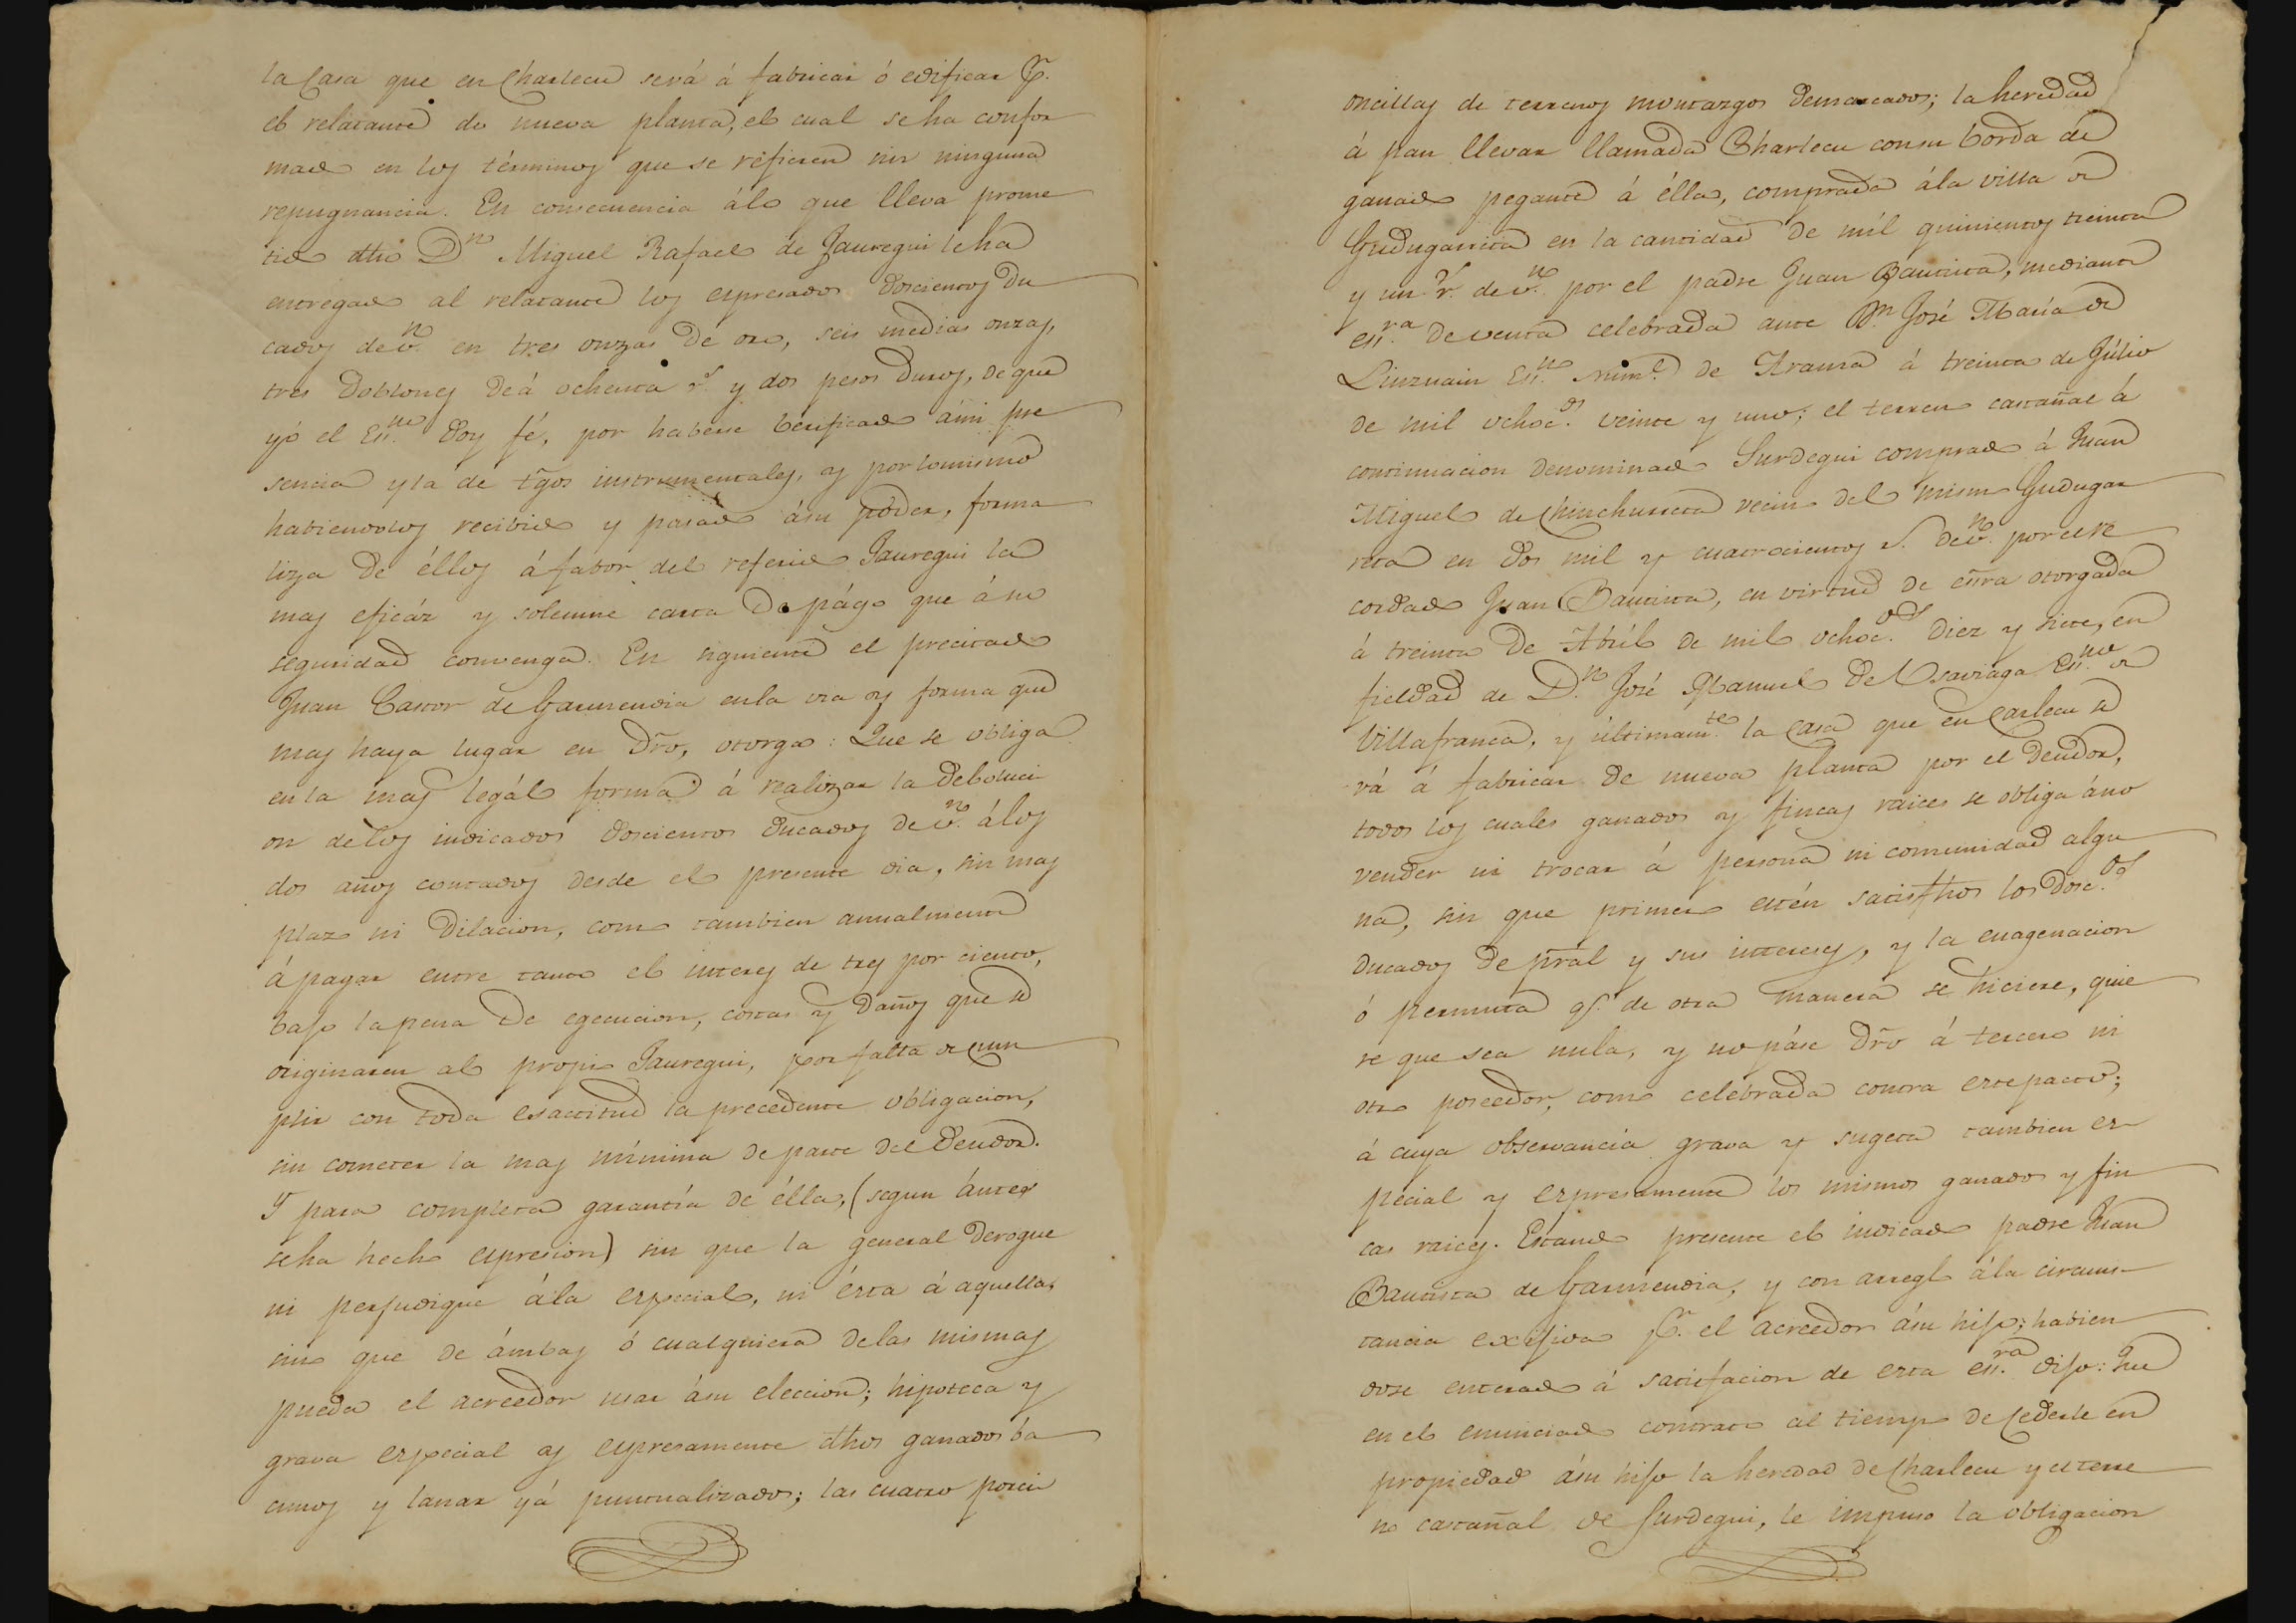 la Casa que en Charlecu será á fabricar ó edificar pr.
el relatante de nueva planta, el cual se ha confor
mado en los términos que se refieren sin ninguna
repugnancia. En consecuencia á lo que lleva prome
tido dho Dn Miguel Rafael de Jauregui le ha
entregado al relatante los espresados doscientos Du
cados de vn. en tres onzas de oro, seis medias onzas,
tres doblones de á ochenta rs. y dos pesos duros, de que
yó el Essno. doy fé, por haberse berificado á mi pre
sencia y la de tgos instrumentales, y por lo mismo
habiendolos recibido y pasado á su poder, forma
liza de éllos á fabor del referido Jauregui la
mas eficáz y solemne carta de págo que á su
seguridad convenga. En siguiente el precitado
Juan Castor de Garmendia en la via y forma que
mas haya lugar en Dro, otorga: Que se obliga
en la mas legál forma á realizar la deboluci
on de los indicados doscientos ducados de vn. á los
dos años contados desde el presente dia, sin mas
plazo ni dilacion, como tambien anualmente
á pagar entre tanto el interes de tres por ciento,
bajo la pena de egecucion, costas y daños que se
originaren al propio Jauregui, por falta de cum
plir con toda esactitud la precedente obligacion,
sin cometer la mas mínima de parte del deudor.
Y para completa garantía de élla, (segun ántes
se ha hecho espresion) sin que la general derogue
ni perjudique á la especial, ni ésta á aquella,
sino que de ámbas ó cualquiera de las mismas
pueda el acreedor usar á su eleccion; hipoteca y
grava especial y espresamente dhos ganados ba
cunos y lanar yá puntualizados; las cuatro porci
oncillas de terrenos montazgos demarcados; la heredad
á pan llevar llamada Charlecu con su borda de
ganado pegante á élla, comprada á la villa de
Gudugarreta en la cantidad de mil quinientos treinta
y un rs. de vn. por el padre Juan Bautista, mediante
essra. de venta celebrada ante Dn José Maria de
Linzuain Essno. Numl. de Ataun á treinta de Júlio
de mil ochocos. veinte y uno; el terreno castañal á
continuacion denominado Surdegui comprado á Juan
Miguel de Chinchurreta vecino del mismo Gudugar
reta en dos mil y cuatrocientos rs. de vn. por el re
cordado Juan Bautista, en virtud de esra otorgada
á treinta de Abríl de mil ochocos. diez y siete, en
fieldad de Dn. José Manuel de Usaviaga Essno. de
Villafranca, y últimamte. la casa que en Carlecu se
rá á fabricar de nueva planta por el deudor,
todos los cuales ganados y fincas raices se obliga á no
vender ni trocar á persona ni comunidad algu
na, sin que primero estén satisfhos los doscos.
ducados de pral y sus intereses, y la enagenacion
ó permuta qe. de otra manera se hiciere, quie
re que sea nula, y no páse Dro á tercero ni
otro poseedor, como celebrada contra este pacto;
á cuya observancia grava y sugeta tambien es
pecial y espresamente los mismos ganados y fin
cas raices. Estando presente el indicado padre Juan
Bautista de Garmendia, y con arreglo á la circuns
tancia exijiva pr. el acreedor á su hijo; habien
dose enterado á satisfacion de esta essra. dijo: Que
en el enunciado contrato al tiempo de cederle en
propiedad á su hijo la heredad de Charlecu y el terre
no castañal de Surdegui, le impuso la obligacion